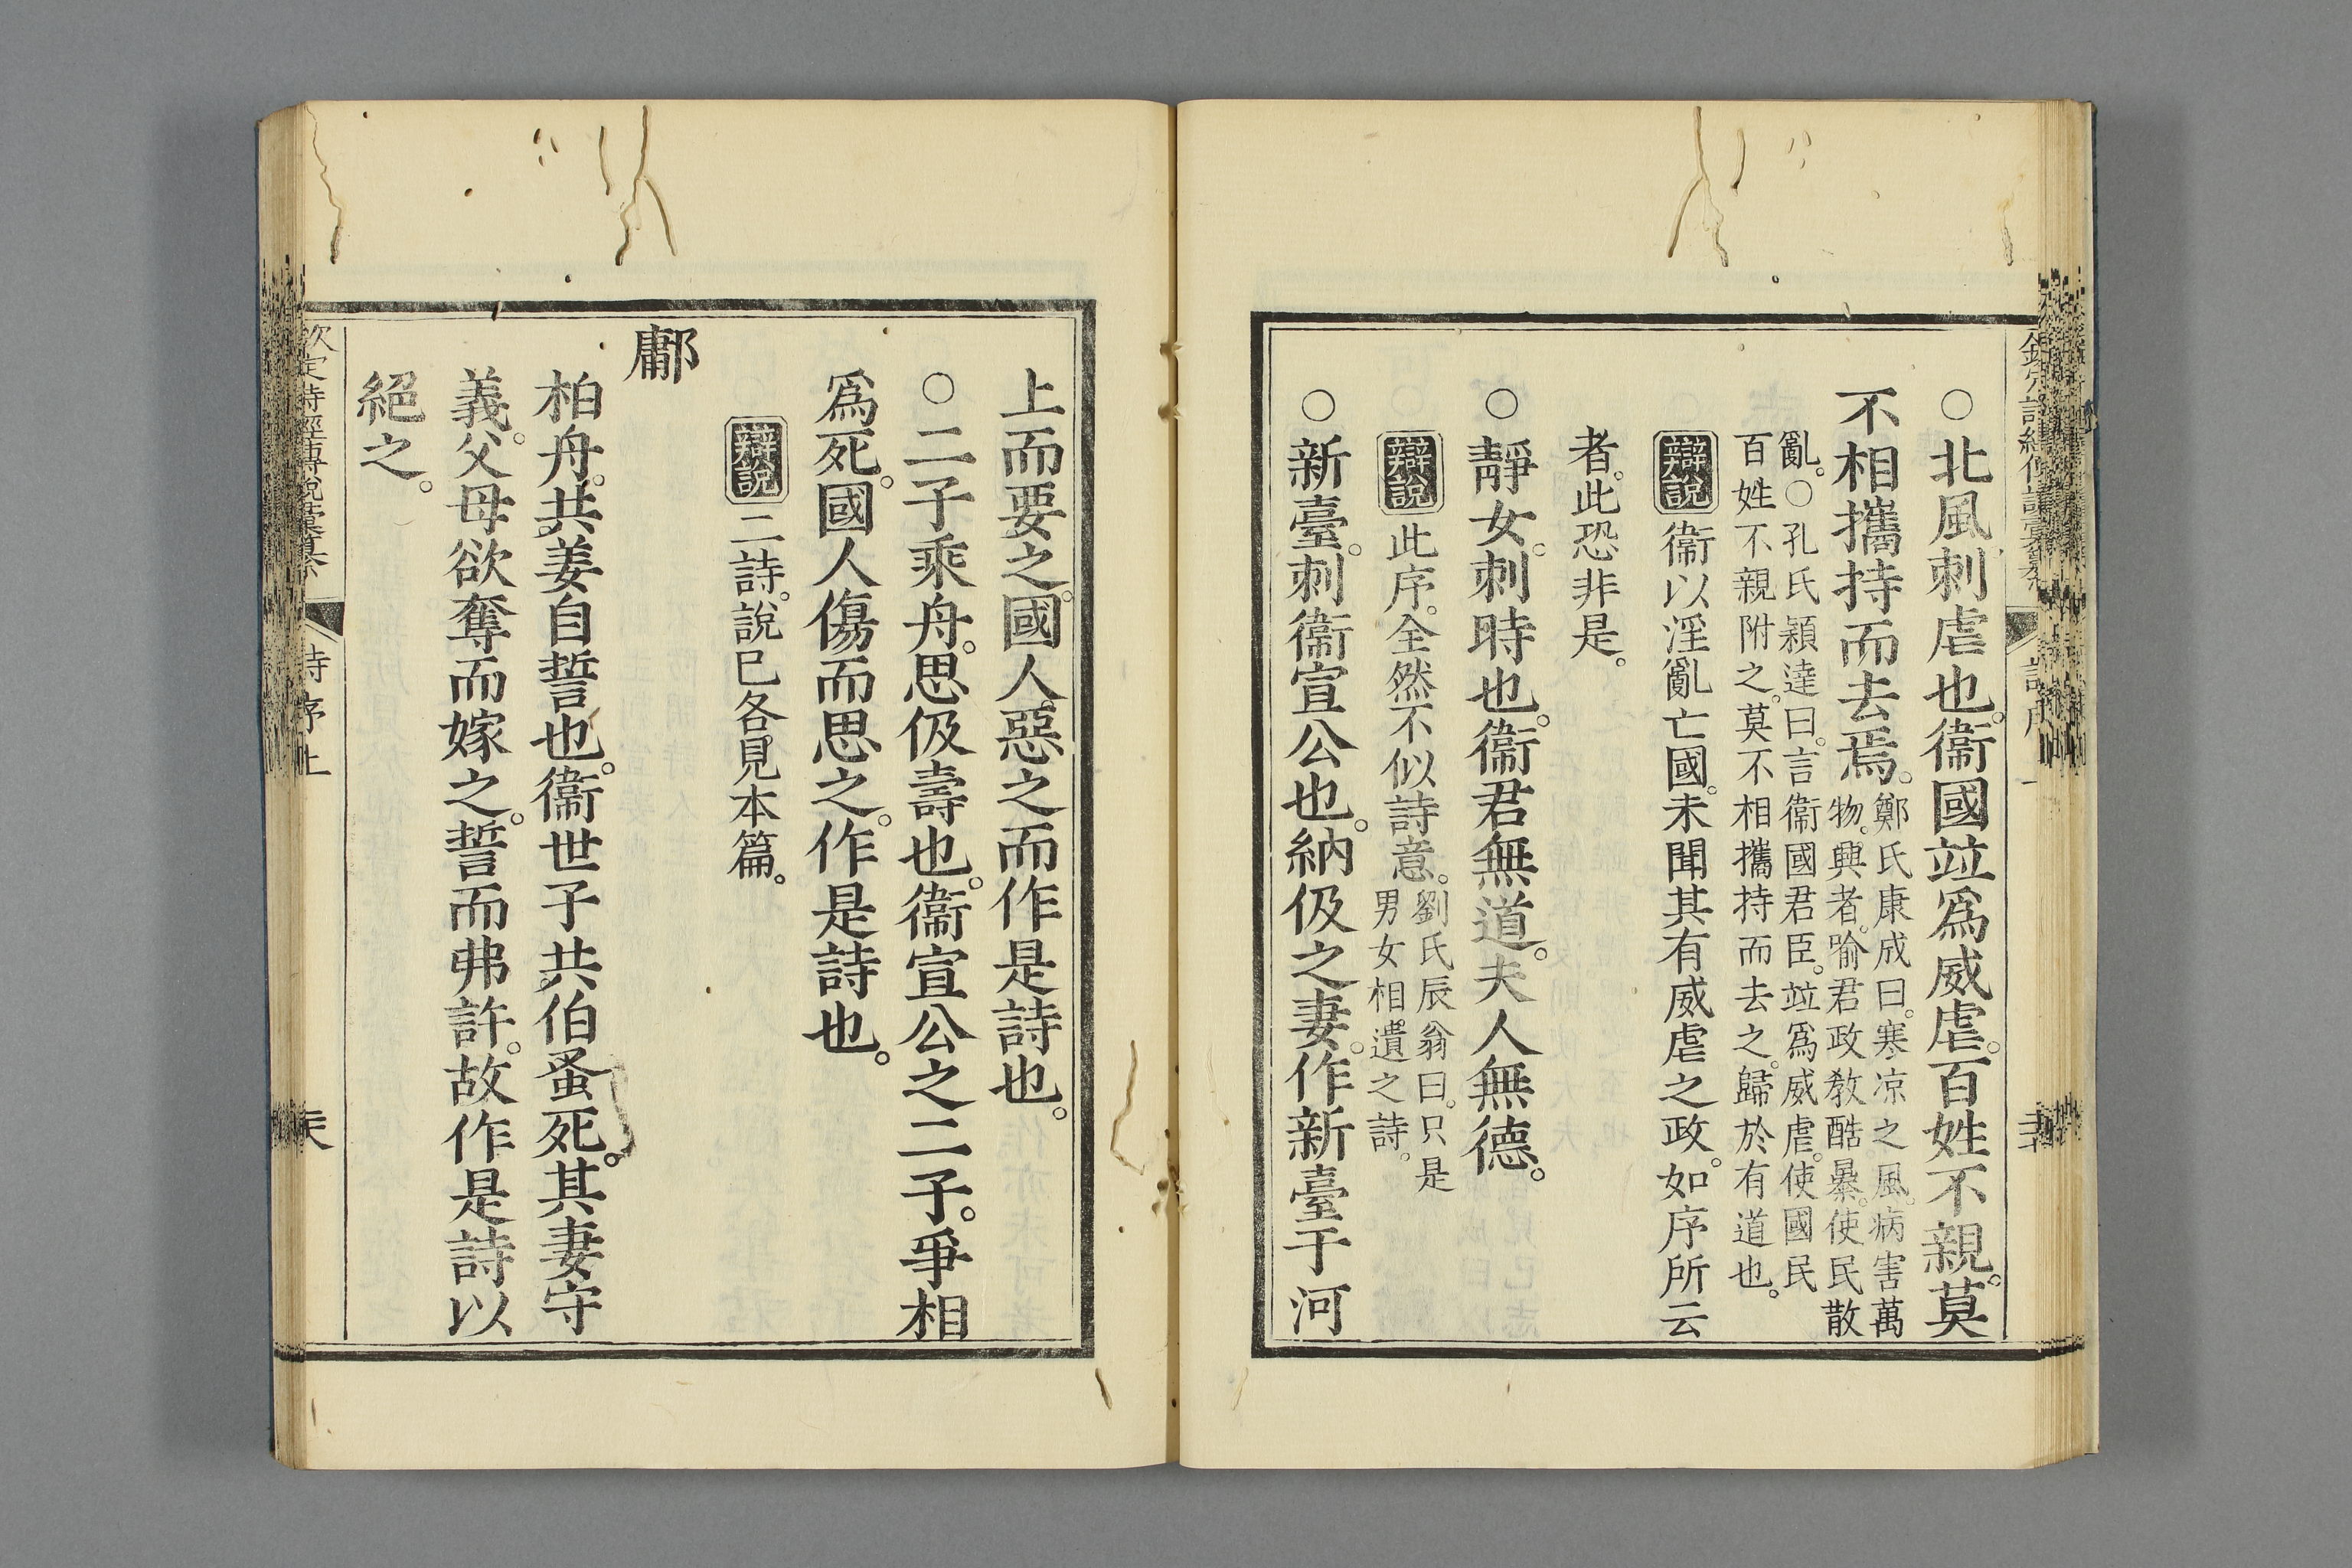 ○北風刺虐也。衞國竝爲威虐。百姓不親。莫
不相攜持而去焉。鄭氏康成曰。寒凉之風。病害萬
物。興者。喻君政教酷暴。使民散
亂。○孔氏穎達曰。言衞國君臣。竝爲威虐。使國民
百姓不親附之。莫不相攜持而去之。歸於有道也。
辯說 衞以淫亂亡國。未聞其有威虐之政。如序所云
者。此恐非是。
○靜女。刺時也。衞君無道。夫人無德。
辯說 此序。全然不似詩意。劉氏辰翁曰。只是
男女相遺之詩。
○新臺。刺衞宣公也。納伋之妻。作新臺于河
上而要之。國人惡之而作是詩也。
○二子乘舟。思伋壽也。衞宣公之二子。爭相
爲死。國人傷而思之。作是詩也。
辯說 二詩。說已各見本篇。
鄘
柏舟。共姜自誓也。衞世子共伯蚤死。其妻守
義。父母欲奪而嫁之。誓而弗許。故作是詩以
絕之。
欽定詩經傳說彙纂 詩序上